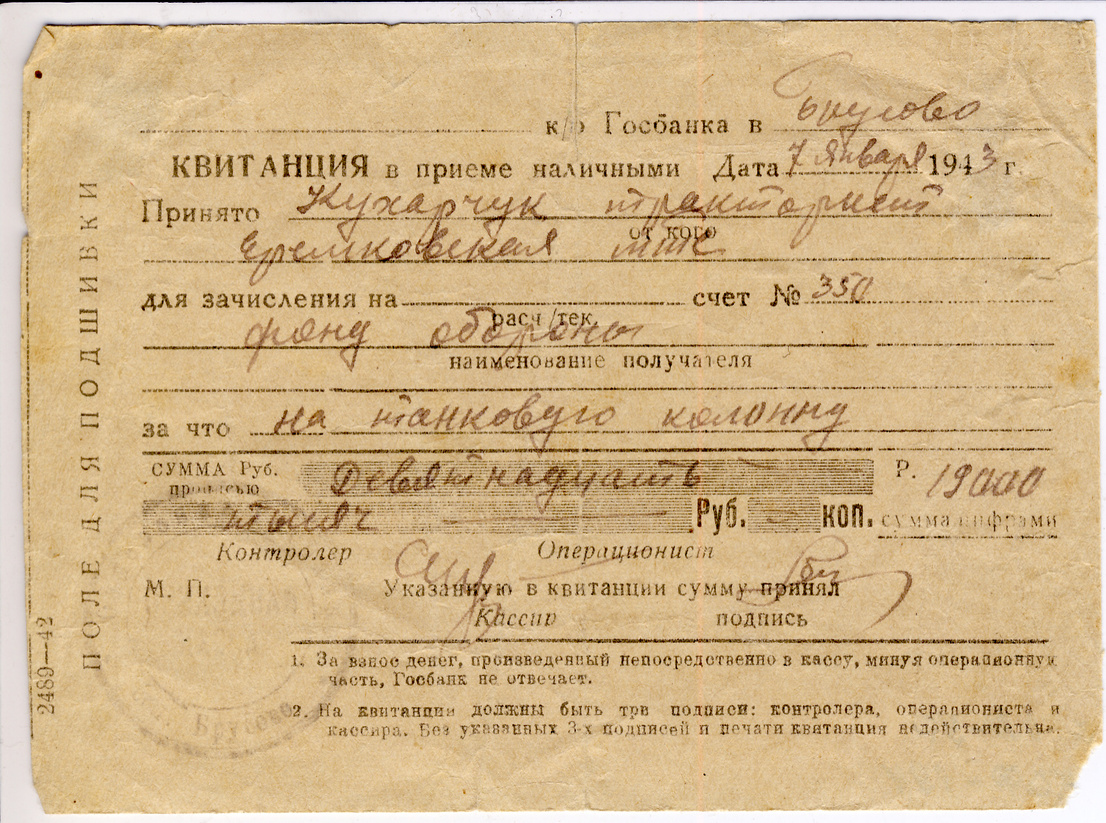 к/о Госбанка в
КВИТАНЦИЯ в приеме наличными Дата 7 января 1943 г.
Принято Кухарчук тракторист
от кого
мтс
для зачисления на счет № 350
расч/тек.
фонд обороны
наименование получателя
за что на танковую колонну
СУММА Руб. Девятнадцать Р. 19000
прописью
тысяч — Руб. — коп. сумма цифрами
Контролер Операционист
М. П. Указанную в квитанции сумму принял
Кассир подпись
1. За взнос денег, произведенный непосредственно в кассу, минуя операционную
часть, Госбанк не отвечает.
2. На квитанции должны быть три подписи: контролера, операциониста и
кассира. Без указанных 3-х подписей и печати квитанция недействительна.
ПОЛЕ ДЛЯ ПОДШИВКИ
2489—42